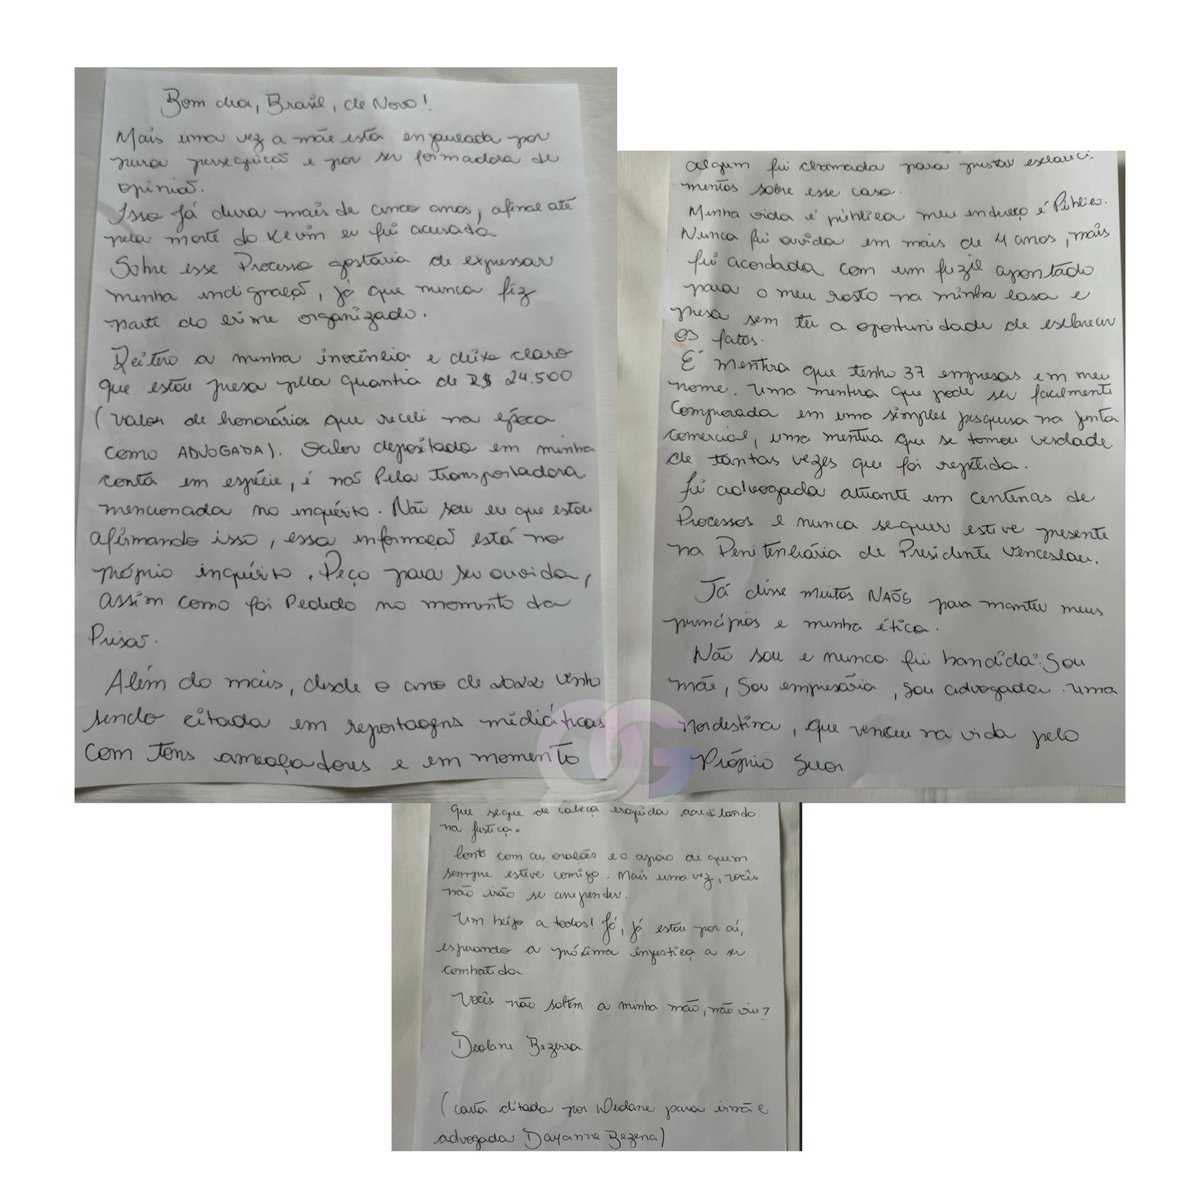 Bom dia, Brasil, de Novo!
Mais uma vez a mãe está enjaulada por
pura perseguição e por ser formadora de
opinião.
Isso já dura mais de cinco anos, afinal até
pela morte do Kevin eu fui acusada
Sobre esse Processo gostária de expressar
minha indignação, já que nunca fiz
parte do crime organizado.
Reitero a minha inocência e deixo claro
que estou presa pela quantia de R$ 24.500
(valor de honorários que recebi na época
como ADVOGADA). Valor depositado em minha
conta em espécie, e não Pela transportadora
mencionada no inquérito. Não sou eu que estou
afirmando isso, essa informação está no
próprio inquérito. Peço para ser ouvida,
assim como foi Pedido no momento da
Prisão.
Além do mais, desde o ano de 2022 venho
sendo citada em reportagens midiáticas
com tons ameaçadores e em momento
algum fui chamada para prestar esclareci-
mentos sobre esse caso.
Minha vida é pública meu endereço é Público.
Nunca fui ouvida em mais de 4 anos, mais
fui acordada com um fuzil apontado
para o meu rosto na minha casa e
presa sem ter a oportunidade de esclarecer
os fatos.
É mentira que tenho 37 empresas em meu
nome. Uma mentira que pode ser facilmente
comprovada em uma simples pesquisa na junta
comercial, uma mentira que se tornou verdade
de tantas vezes que foi repetida.
fui advogada atuante em centenas de
Processos e nunca sequer estive presente
na Penitenciária de Presidente Venceslau.
Já disse muitos NÃOS para manter meus
princípios e minha ética.
Não sou e nunca fui bandida. Sou
mãe, sou empresária, sou advogada. uma
nordestina, que venceu na vida pelo
Próprio Suor
que segue de cabeça erguida acreditando
na justiça.
Conto com as orações e o apoio de quem
sempre esteve comigo. Mais uma vez, vocês
não irão se arrepender.
Um beijo a todos! Já, já estou por aí,
esperando a próxima injustiça a ser
combatida.
Vocês não soltem a minha mão, não viu?
Deolane Bezerra
(carta ditada por Deolane para irmã e
advogada Dayanne Bezerra)